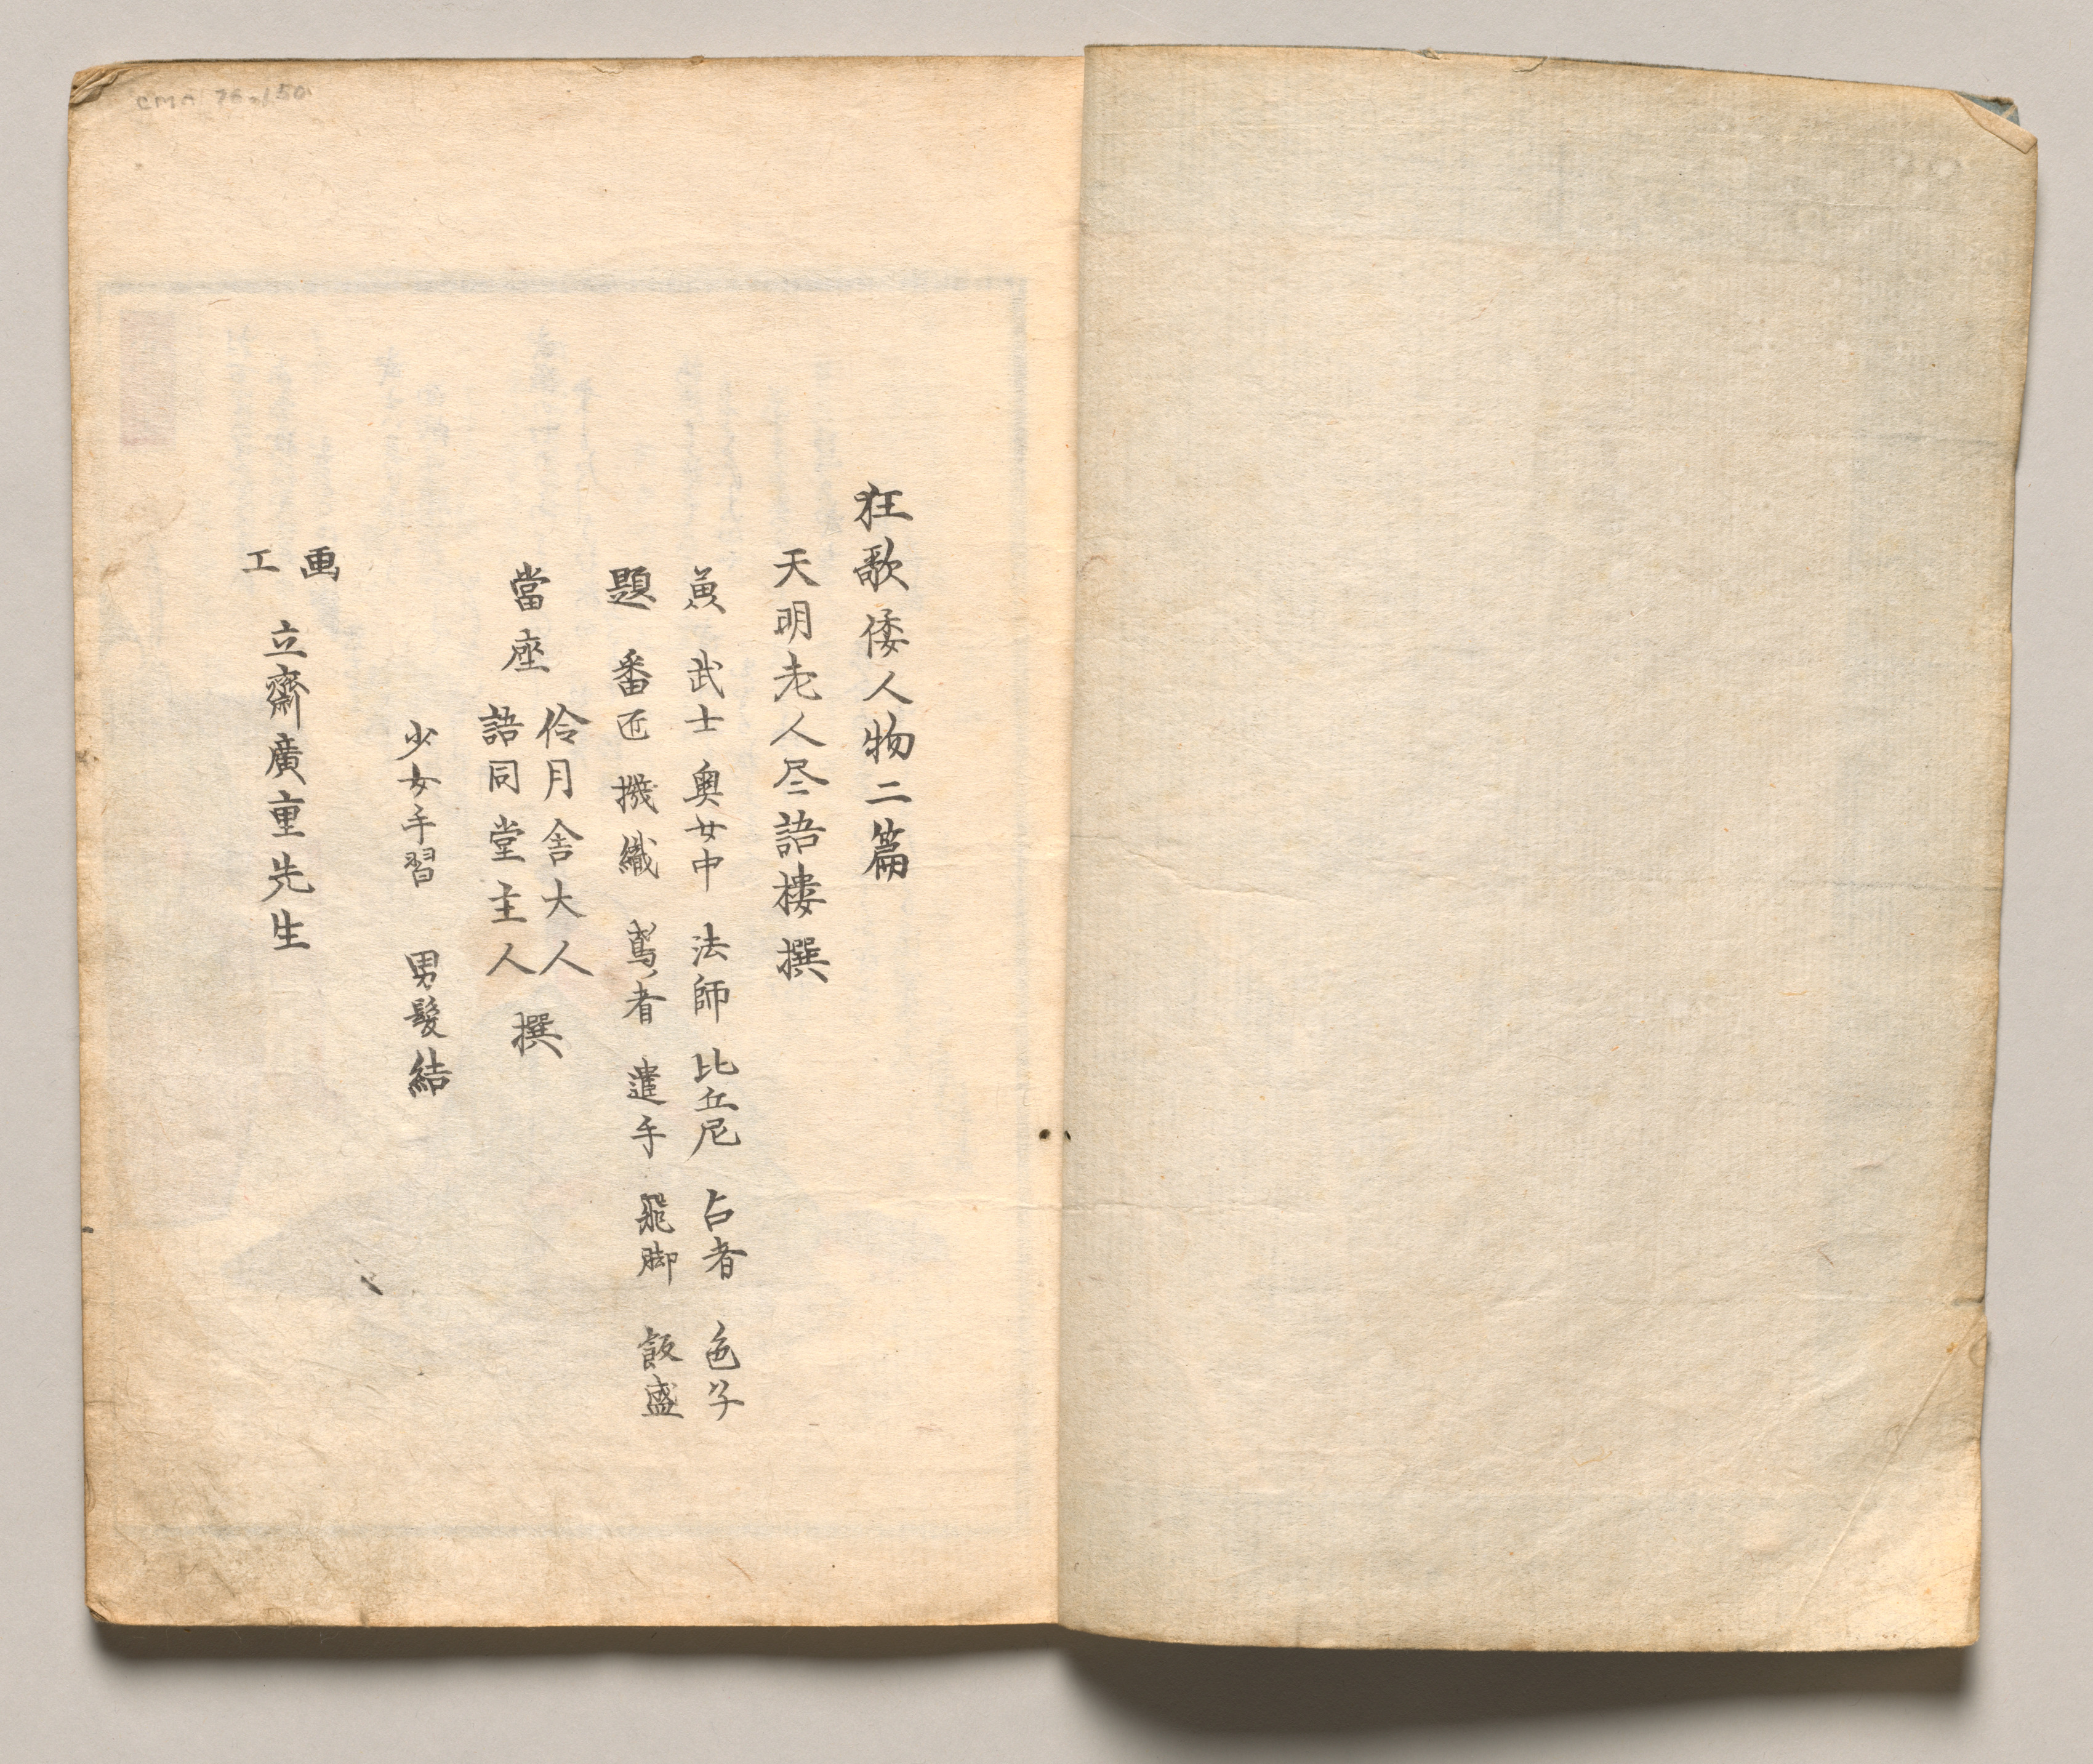 狂歌倭人物二篇
天明老人尽語樓撰
兼 武士 奥女中 法師 比丘尼 占者 色子
題 番匠 機織 鳶ノ者 遣手 飛脚 飯盛
當座 伶月舎大人
語同堂主人 撰
少女手習 男髪結
画工 立齋廣重先生
CMA 76.150